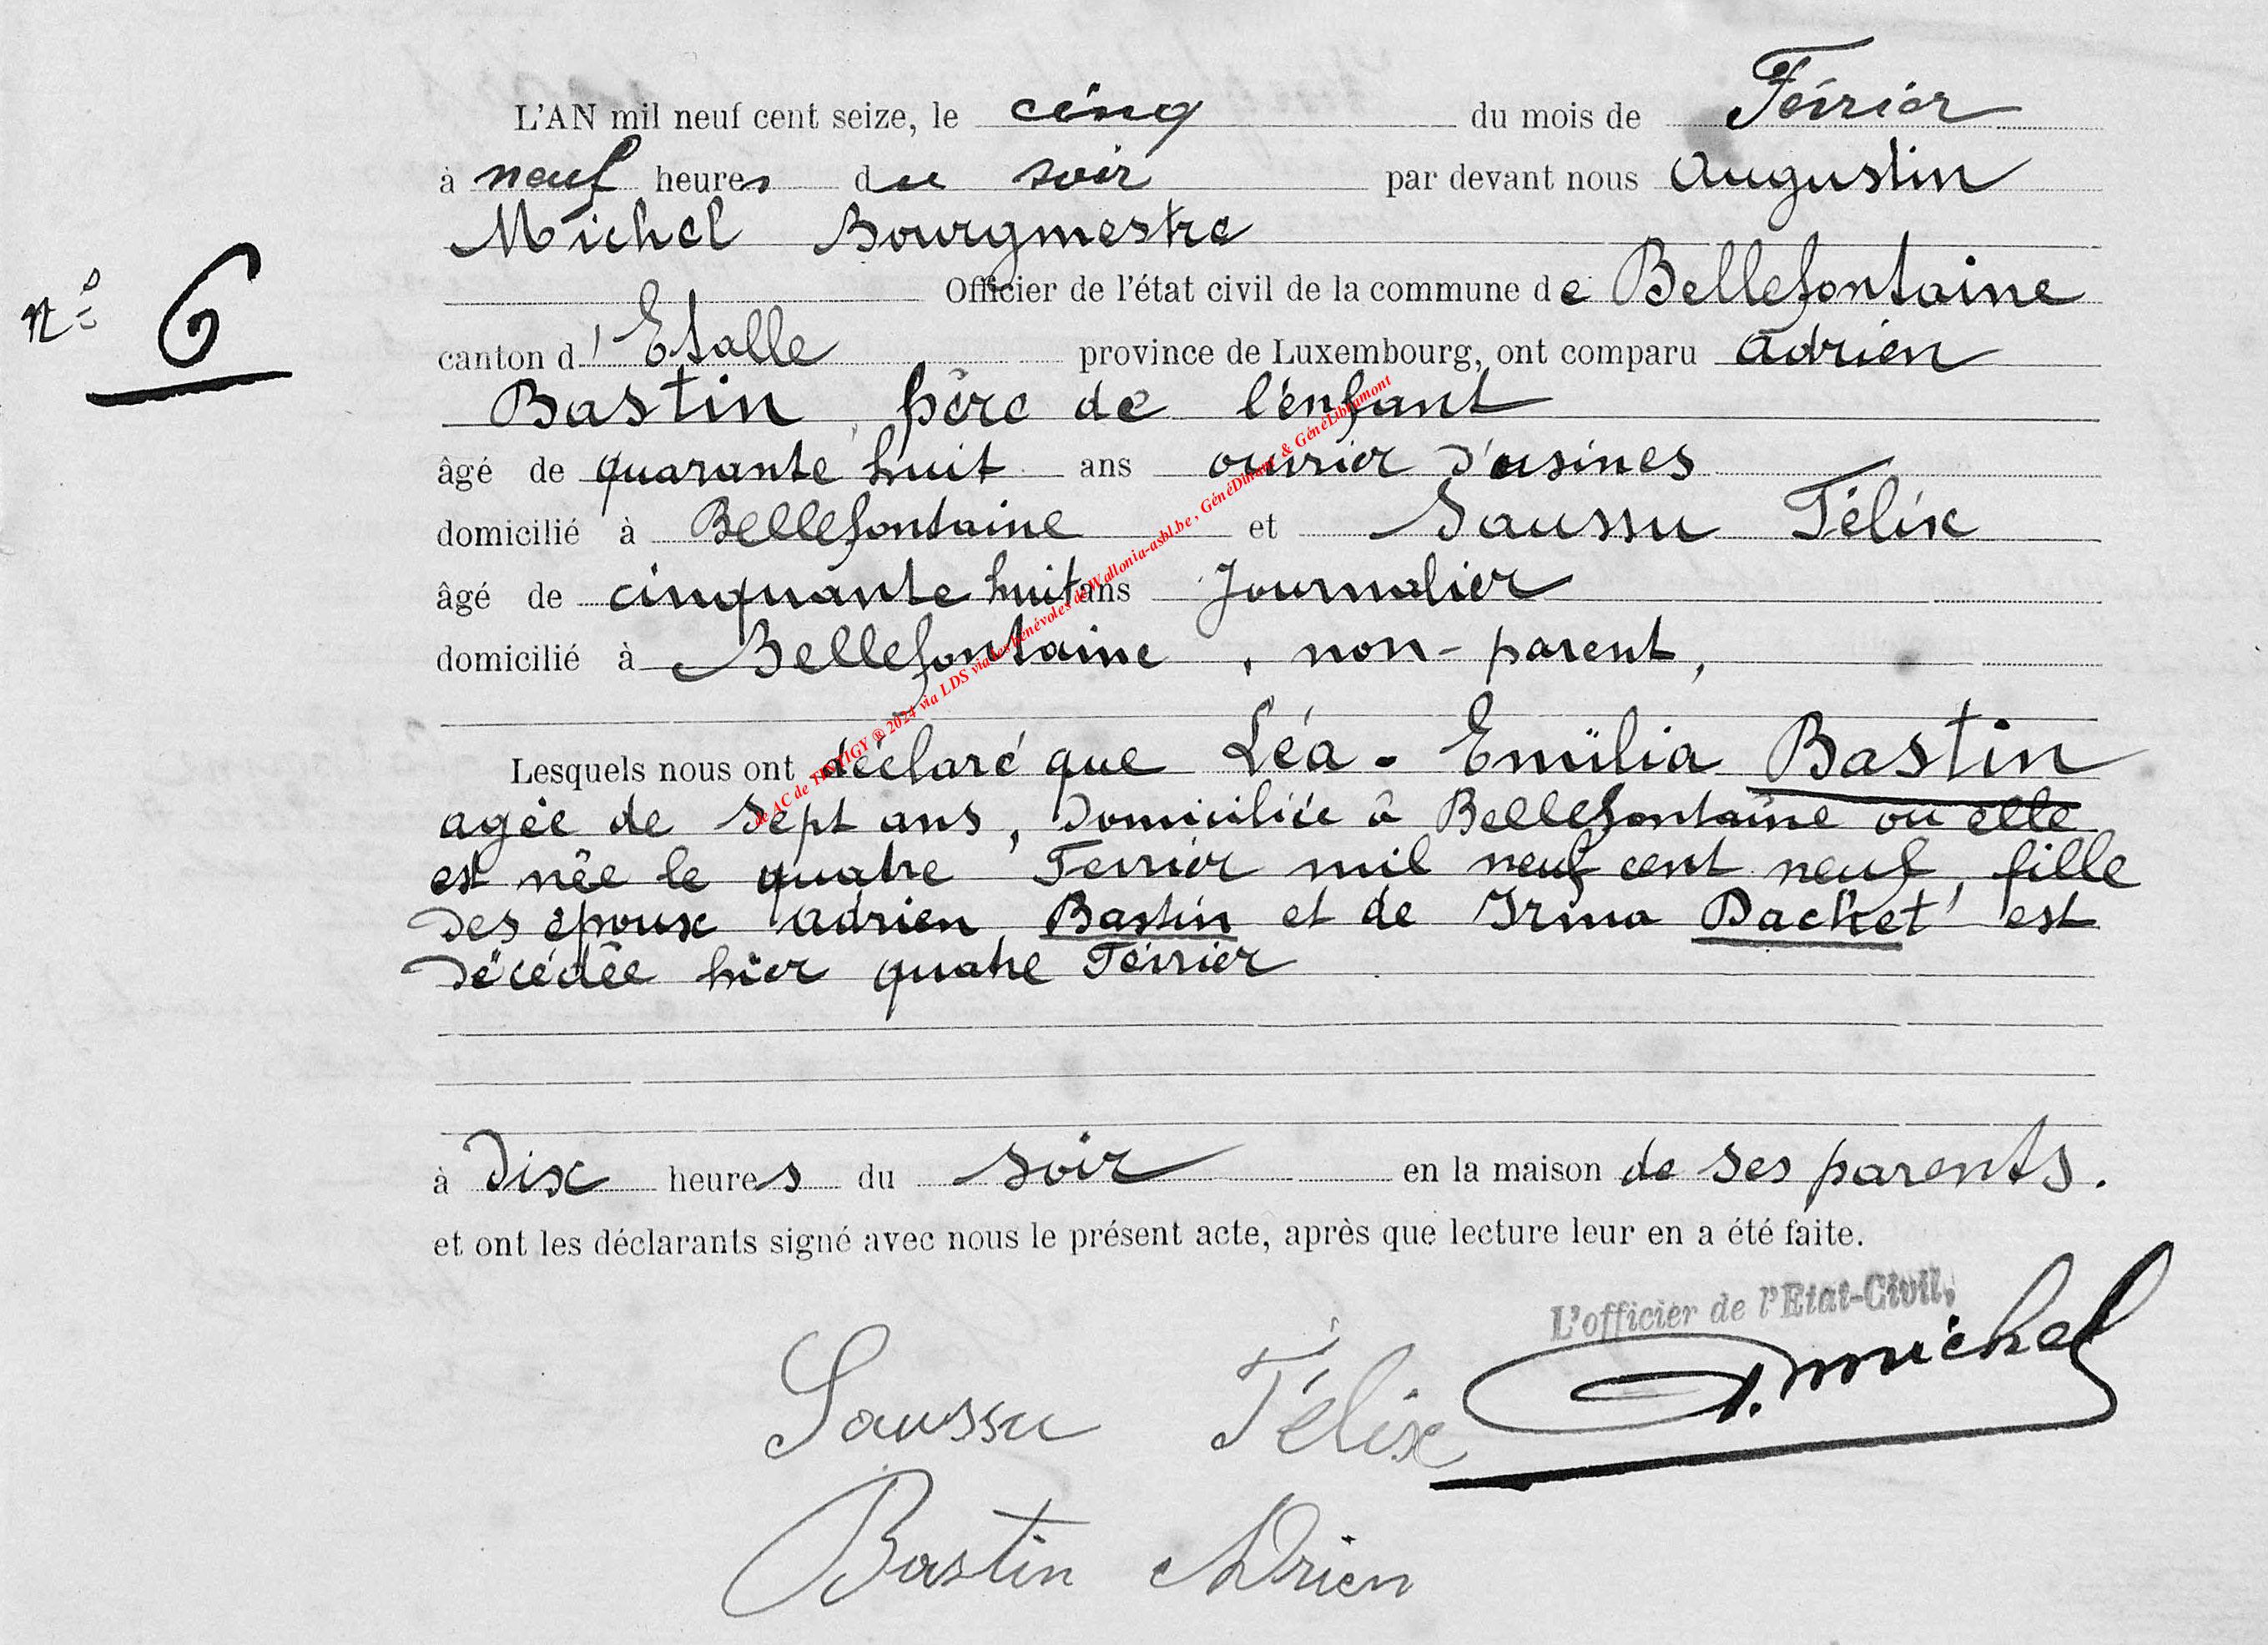 L'AN mil neuf cent seize, le cinq du mois de Février
à neuf heures du soir par devant nous Augustin
Michel Bourgmestre
n° 6
Officier de l'état civil de la commune de Bellefontaine
canton d'Etalle province de Luxembourg, ont comparu Adrien
Bastin, père de l'enfant
âgé de quarante huit ans ouvrier d'usines
domicilié à Bellefontaine et Saussu Félix
âgé de cinquante huit ans Journalier
domicilié à Bellefontaine, non-parent,
Lesquels nous ont déclaré que Léa-Emilia Bastin
agée de Sept ans, Domiciliée à Bellefontaine ou elle
est née le quatre Fevrier mil neuf cent neuf, fille
Des epoux Adrien Bastin et de Irma Dachet est
Décédée hier quatre Février
à Dix heures du soir en la maison de ses parents.
et ont les déclarants signé avec nous le présent acte, après que lecture leur en a été faite.
L'officier de l'Etat-Civil,
A. Michel
Saussu Félix
Bastin Adrien
de AC de TINTIGY ® 2024 via LDS via les bénévoles de Wallonia-asbl.be, GénéDinant & GénéLibramont